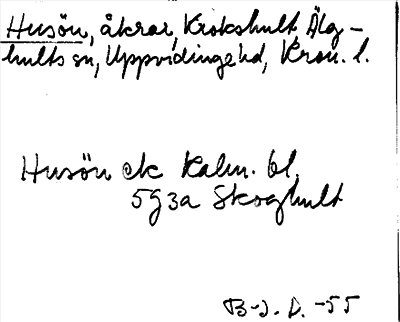 Husön, åkrar, Krokshult, Älg-
hults sn, Uppvidinge hd, Kron. l.
Husön ek Kalm. bl.
5g3a Skoghult
B-J. D. -55